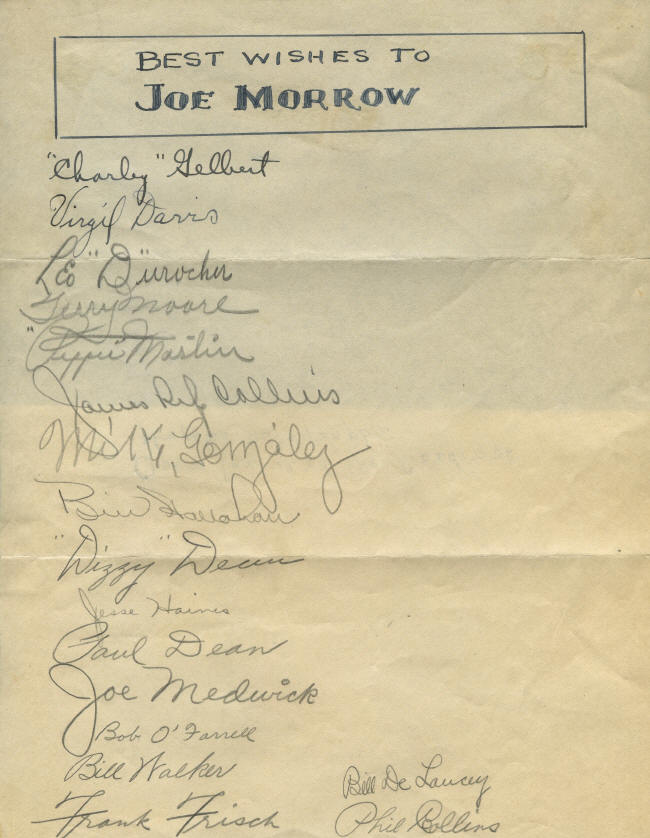 BEST WISHES TO
JOE MORROW
"Charley" Gelbert
Virgil Davis
Leo "D"urocher
Terry Moore
"Pepper Martin
James Rip Collins
Mike, González
Bill Hallahan
"Dizzy" Dean
Jesse Haines
Paul Dean
Joe Medwick
Bob O'Farrell
Bill Walker
Bill De Lancey
Frank Frisch
Phil Collins